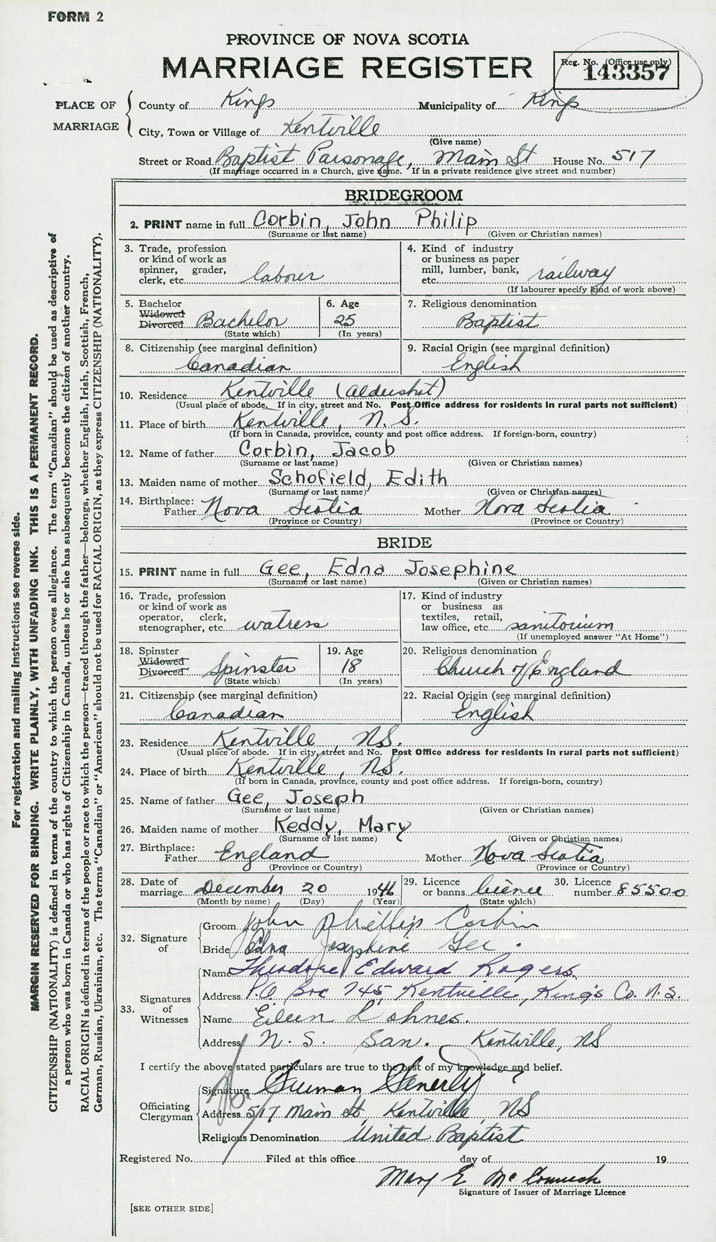 FORM 2
PROVINCE OF NOVA SCOTIA
MARRIAGE REGISTER
Reg. No. (Office use only)
143357
PLACE OF MARRIAGE
County of Kings Municipality of Kings
City, Town or Village of Kentville
(Give name)
Street or Road Baptist Parsonage, Main St House No. 517
(If marriage occurred in a Church, give name. If in a private residence give street and number)
BRIDEGROOM
2. PRINT name in full Corbin, John Philip
(Surname or last name) (Given or Christian names)
3. Trade, profession or kind of work as spinner, grader, clerk, etc. labour
4. Kind of industry or business as paper mill, lumber, bank, etc. railway
(If labourer specify kind of work above)
5. Bachelor Widowed Divorced Bachelor
(State which)
6. Age 25
(In years)
7. Religious denomination
Baptist
8. Citizenship (see marginal definition)
Canadian
9. Racial Origin (see marginal definition)
English
10. Residence Kentville (Aldershot)
(Usual place of abode. If in city, street and No. Post Office address for residents in rural parts not sufficient)
11. Place of birth Kentville, N.S.
(If born in Canada, province, county and post office address. If foreign-born, country)
12. Name of father Corbin, Jacob
(Surname or last name) (Given or Christian names)
13. Maiden name of mother Schofield, Edith
(Surname or last name) (Given or Christian names)
14. Birthplace: Father Nova Scotia Mother Nova Scotia
(Province or Country) (Province or Country)
BRIDE
15. PRINT name in full Gee, Edna Josephine
(Surname or last name) (Given or Christian names)
16. Trade, profession or kind of work as operator, clerk, stenographer, etc. watress
17. Kind of industry or business as textiles, retail, law office, etc. sanitorium
(If unemployed answer "At Home")
18. Spinster Widowed Divorced Spinster
(State which)
19. Age 18
(In years)
20. Religious denomination
Church of England
21. Citizenship (see marginal definition)
Canadian
22. Racial Origin (see marginal definition)
English
23. Residence Kentville, NS.
(Usual place of abode. If in city, street and No. Post Office address for residents in rural parts not sufficient)
24. Place of birth Kentville, NS.
(If born in Canada, province, county and post office address. If foreign-born, country)
25. Name of father Gee, Joseph
(Surname or last name) (Given or Christian names)
26. Maiden name of mother Keddy, Mary
(Surname or last name) (Given or Christian names)
27. Birthplace: Father England Mother Nova Scotia
(Province or Country) (Province or Country)
28. Date of marriage December 20 1946
(Month by name) (Day) (Year)
29. Licence or banns licence
(State which)
30. Licence number 85500
32. Signature of
Groom John Phillip Corbin
Bride Edna Josephine Gee.
33. Signatures of Witnesses
Name Theodore Edward Rogers
Address P.O Box 745, Kentville, King's Co. N.S.
Name Eileen
Address N.S. San. Kentville, NS
I certify the above stated particulars are true to the best of my knowledge and belief.
Officiating Clergyman
Signature
Address 517 Main St Kentville, NS
Religious Denomination United Baptist
Registered No. Filed at this office day of 19
Mary E.
Signature of Issuer of Marriage Licence
[SEE OTHER SIDE]
For registration and mailing instructions see reverse side.
MARGIN RESERVED FOR BINDING. WRITE PLAINLY, WITH UNFADING INK. THIS IS A PERMANENT RECORD.
CITIZENSHIP (NATIONALITY) is defined in terms of the country to which the person owes allegiance. The term "Canadian" should be used as descriptive of
a person who was born in Canada or who has rights of Citizenship in Canada, unless he or she has subsequently become the citizen of another country.
RACIAL ORIGIN is defined in terms of the people or race to which the person—traced through the father—belongs, whether English, Irish, Scottish, French,
German, Russian, Ukrainian, etc. The terms "Canadian" or "American" should not be used for RACIAL ORIGIN, as they express CITIZENSHIP (NATIONALITY).